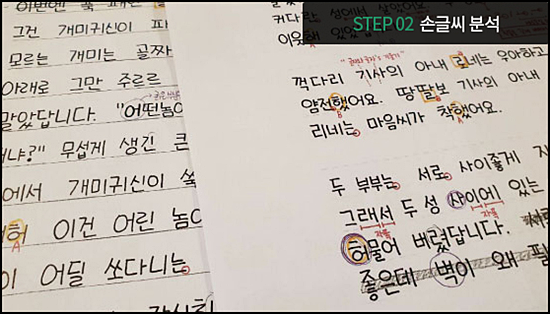 STEP 02 손글씨 분석
이번엔
그건 개미귀신이
모르는 개미는 골짜
아래로 그만 주르르
말았답니다. "어떤놈이
냐?" 무섭게 생긴 큰
에서 개미귀신이 쑥
허 이건 어린 놈이
이 어딜 쏘다니는
커다란 성에서 살았
이웃해 있었
꺽다리 기사의 아내 리네는 우아하고
얌전했어요. 땅딸보 기사의 아내
리네는 마음씨가 착했어요.
두 부부는 서로 사이좋게 지
그래서 두 성 사이에 있는
자폭
자폭
허물어 버렸답니다.
좋은데 벽이 왜 필